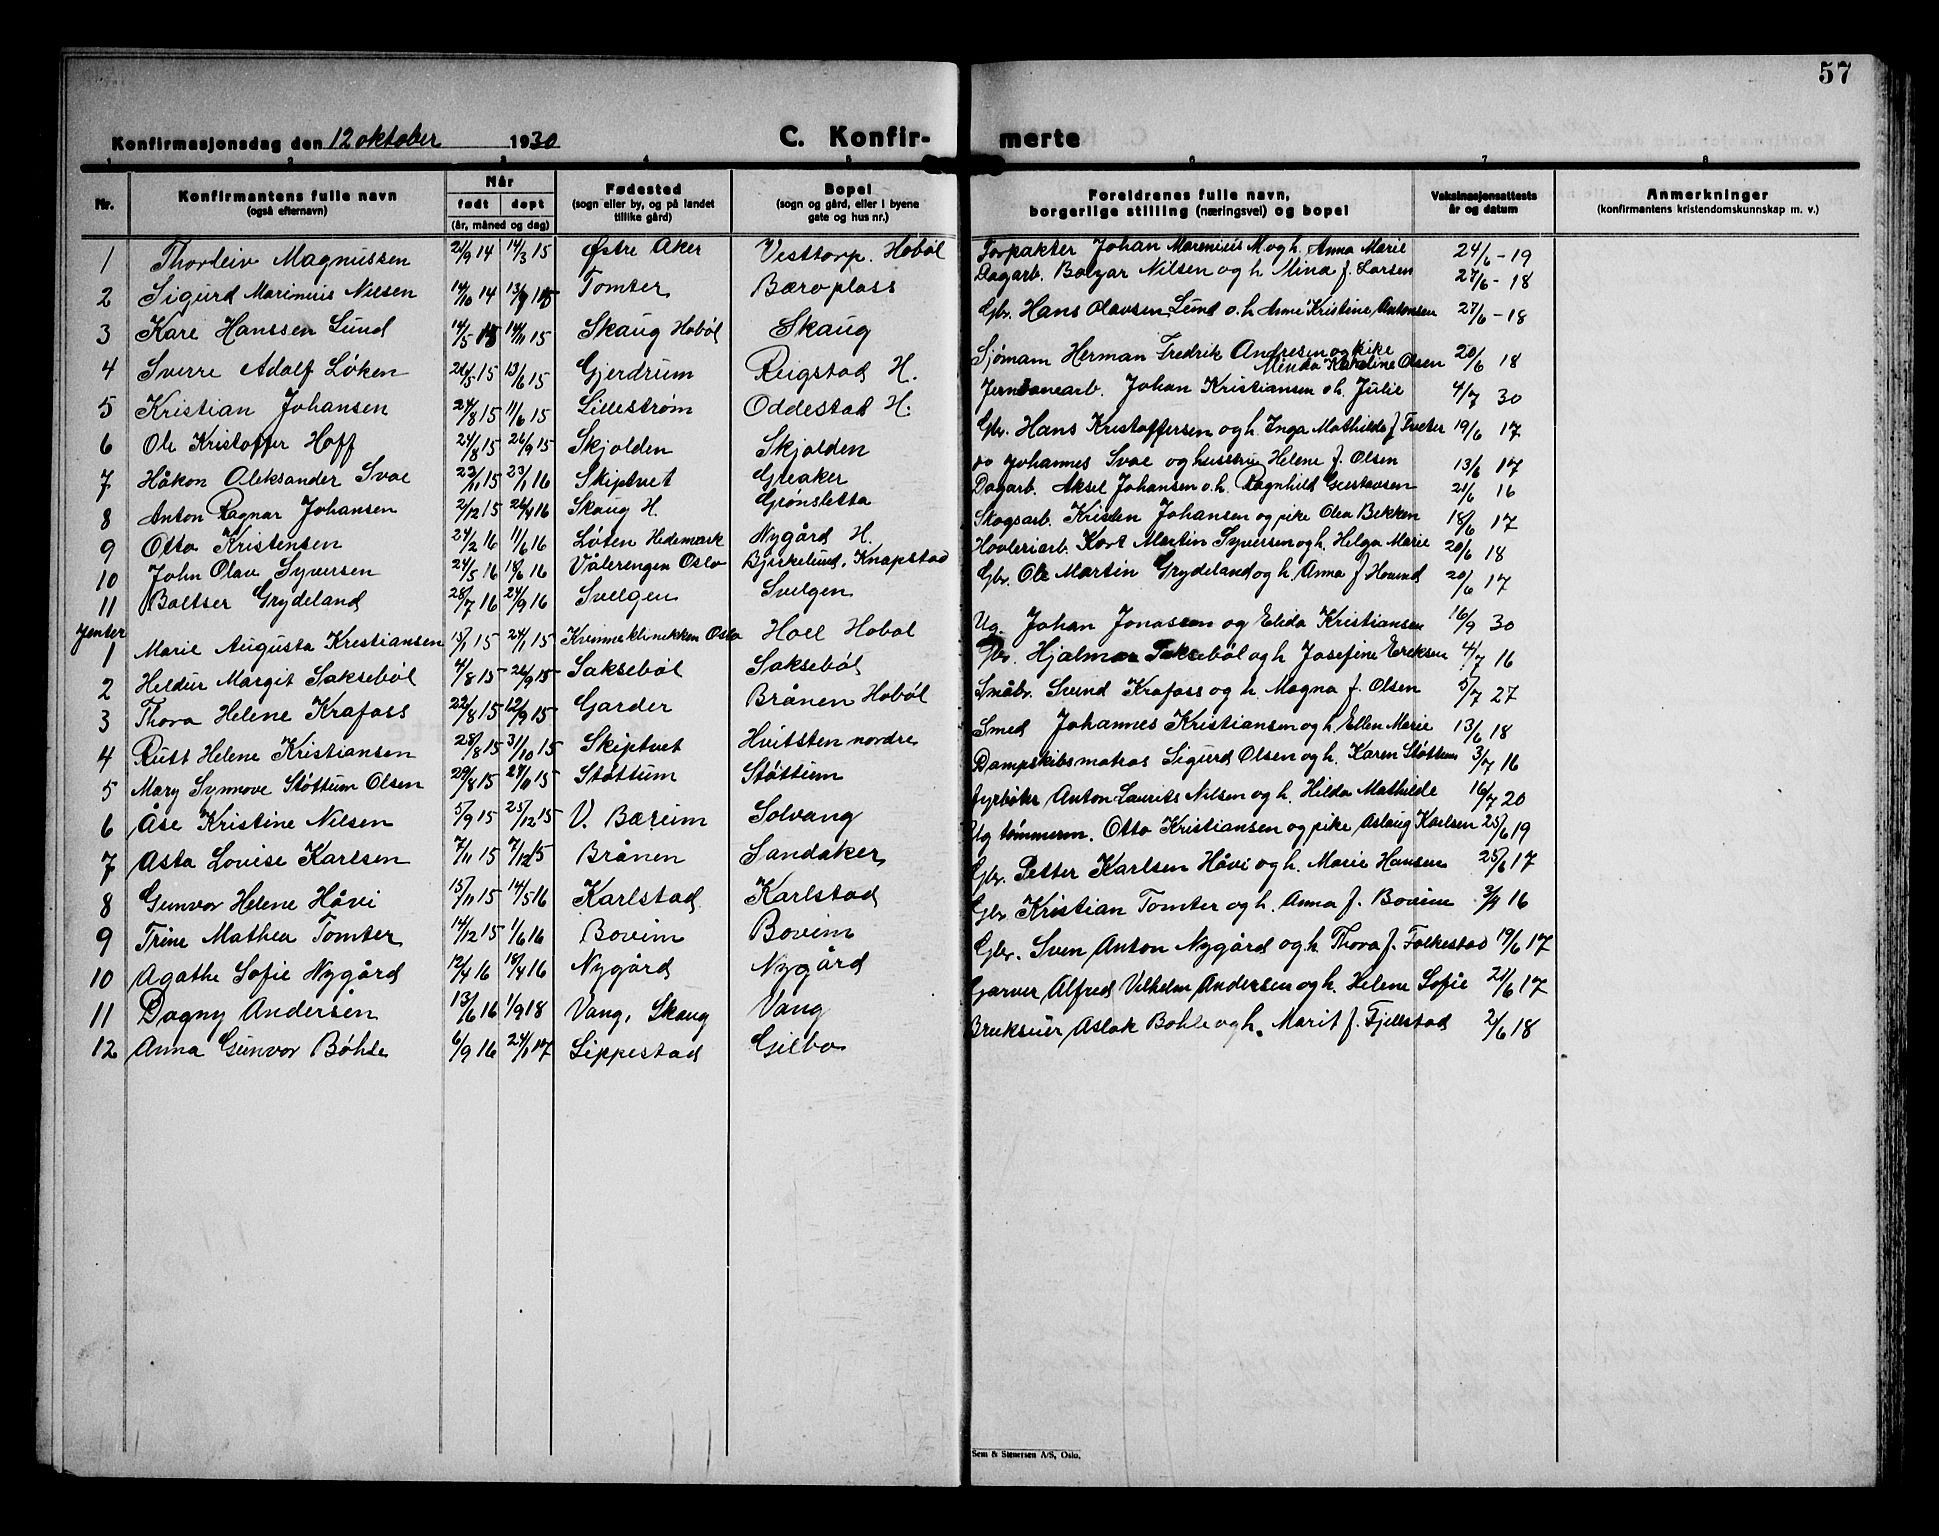 57
Konfirmasjonsdag den 12 oktober 1930 C. Konfir- merte
1 2 3 4 5 6 7 8
Nr. Konfirmantens fulle navn (også efternavn) Når født døpt (år, måned og dag) Fødested (sogn eller by, og på landet tillike gård) Bopel (sogn og gård, eller i byene gate og hus nr.) Foreldrenes fulle navn, borgerlige stilling (næringsvei) og bopel Vaksinasjonsattests år og datum Anmerkninger (konfirmantens kristendomskunnskap m. v.)
1 Thorleiv Magnussen 21/9 14 14/3 15 Østre Aker Vesttorp. Hobøl Forpakter Johan Marenius M. og h. Anna Marie 24/6 - 19
2 Sigurd Marinius Nilsen 14/10 14 Tomter Bæroplass Dagarb. Bolzar Nilsen og h Mina f. Larsen 27/6 - 18
3 Kåre Hanssen Lund 14/5 14/11 15 Skaug Hobøl Skaug Gbr. Hans Olavsen Lund o.h Anne Kristine Antonsen 27/6 - 18
4 Sverre Adolf Løken 15 13/6 15 Gjerdrum Reigstad H. Sjømann Herman Fredrik Andresen og pike Minda Karoline Olsen 20/6 18
5 Kristian Johansen 24/8 15 11/6 15 Lillestrøm Oddestad H. Jernbanearb. Johan Kristiansen o.h. Julie 4/7 30
6 Ole Kristoffer Hoff 24/8 15 26/9 15 Skjolden Skjolden Gbr. Hans Kristoffersen og h. Inga Mathilde f Tveter 19/6 17
7 Håkon Aleksander Svae 22/11 15 23/1 16 Skiptvet Greaker do Johannes Svae og hustru Helene f. Olsen 13/6 17
8 Anton Ragnar Johansen 2/12 15 24/4 16 Skaug H. Grønsletta Dagarb. Aksel Johansen o.h. Ragnhild Gustavsen 21/6 16
9 Otto Kristensen 24/2 16 11/6 16 Løten Hedemark Nygård H. Skogsarb. Kristen Johansen og pike Olea Bekken 18/6 17
10 John Olav Syversen 24/5 16 18/6 16 Vålerengen Oslo Bjerkelund, Knapstad Hovleriarb. Kort Martin Syversen og h. Helga Marie 20/6 18
11 Baltser Grydeland 28/7 16 24/9 16 Svelgen Svelgen Gbr. Ole Martin Grydeland og h. Anna f 20/6 17
Jenter
1 Marie Augusta Kristiansen 15/1 15 24/1 15 Kvinneklinikken Oslo Hoel Hobøl Ug. Johan Jonassen og Elida Kristiansen 16/9 30
2 Heldur Margit Saksebøl 4/8 15 26/9 15 Saksebøl Saksebøl Gbr. Hjalmar Saksebøl og h Josefine Eriksen 4/7 16
3 Thora Helene Krafass 22/8 15 12/9 15 Garder Brånen Hobøl Småbr. Svend Krafass og h Magna f. Olsen 5/7 27
4 Rutt Helene Kristiansen 28/8 15 31/10 15 Skiptvet Hvitsten nordre Smed Johannes Kristiansen og h. Ellen Marie 13/6 18
5 Mary Synnøve Støttum Olsen 29/8 15 24/10 15 Støttum Støttum Dampskibsmatros Sigurd Olsen og h. Karen Støttum 3/7 16
6 Åse Kristine Nilsen 5/9 15 25/12 15 V. Bærum Solvang Fyrbøter Anton Laurits Nilsen og h. Hilda Mathilde 16/7 20
7 Asta Lovise Karlsen 7/11 15 7/12 15 Brånen Sandaker Ug tømmerm. Otto Kristiansen og pike Aslaug Karlsen 25/6 19
8 Gunvor Helene Håvi 15/11 15 14/5 16 Karlstad Karlstad Gbr. Petter Karlsen Håvi og h. Marie Hansen 25/6 17
9 Trine Mathea Tomter 14/12 15 1/6 16 Bovim Bovim Gbr Kristian Tomter og h. Anna f. Bovim 3/7 16
10 Agathe Sofie Nygård 12/4 16 18/4 16 Nygård Nygård Gbr. Sven Anton Nygård og h. Thora f. Folkestad 19/6 17
11 Dagny Andersen 13/6 16 1/9 18 Vang, Skaug Vang Garver Alfred Vilhelm Andersen og h. Helene Sofie 21/6 17
12 Anna Gunvor Bøhle 6/9 16 24/1 17 Lippestad Gilbo Brukseier Aslak Bøhle og h. Marit f. Fjellstad 2/6 18
Sem & Stenersen A/S, Oslo.